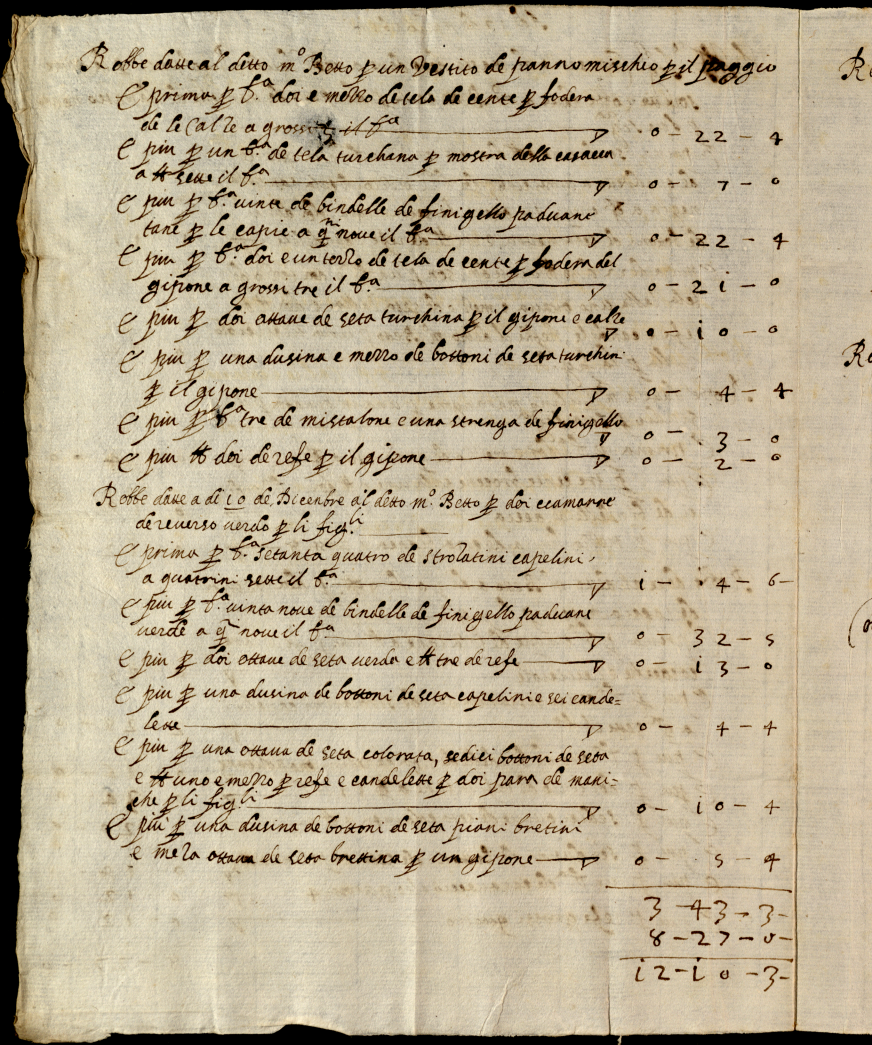 Robbe datte al detto m.º Betto p un Vestito de panno mischio p il paggio
E prima p b.ª doi e mezzo de tela de cente p fodera
de le Calze a grossi il b.ª 0 - 22 - 4
E piu p un b.ª de tela turchana p mostra della casacca
a sette il b.ª 0 - 7 - 0
E piu p b.ª vinte de bindelle de finigello paduane
tane p le capie a q.ni nove il b.ª 0 - 22 - 4
E piu p b.ª doi e un terzo de tela de cente p fodera del
gipone a grossi tre il b.ª 0 - 21 - 0
E piu p doi ottave de seta turchina p il gipone e calze 0 - 10 - 0
E piu p una dusina e mezzo de bottoni de seta turchin
p il gipone 0 - 4 - 4
E piu p b.ª tre de mistalone e una strenga de finigello 0 - 3 - 0
E piu doi de refe p il gipone 0 - 2 - 0
Robbe datte a di 10 de Dicenbre al detto m.º Betto p doi
de reverso verdo p li figli
E prima p b.ª setanta quatro de strolatini capelini
a quatrini sette il b.ª 1 - 4 - 6 -
E piu p b.ª vinta nove de bindelle de finigello paduane
verde a q.ni nove il b.ª 0 - 32 - 5
E piu p doi ottave de seta verda e tre de refe 0 - 13 - 0
E piu p una dusina de bottoni de seta capelini e sei cande=
lette 0 - 4 - 4
E piu p una ottava de seta colorata, sedici bottoni de seta
e uno e mezzo p refe e candelette p doi para de mani-
che p li figli 0 - 10 - 4
E piu p una dusina de bottoni de seta piani bretini
e meza ottava de seta brettina p un gipone 0 - 5 - 4
3 - 43 - 3 -
8 - 27 - 0 -
12 - 10 - 3 -